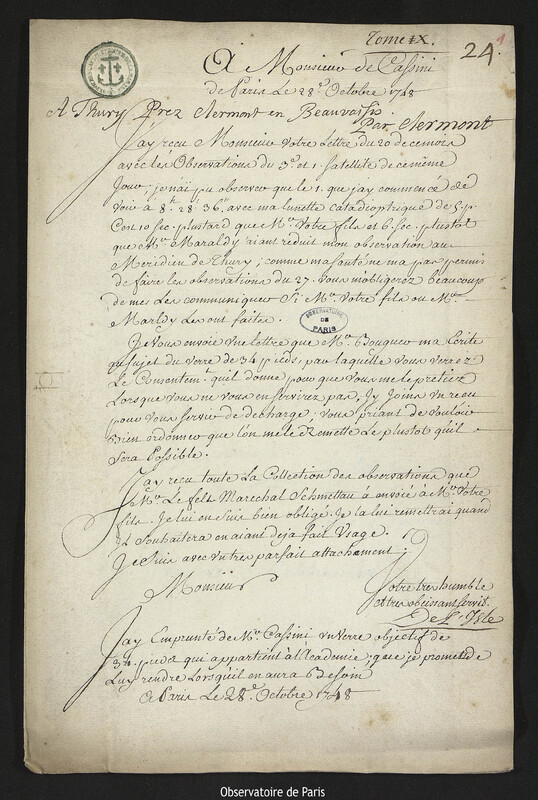 Tome IX.
24.
A Monsieur de Cassini
de Paris Le 28e. Octobre 1748
A Thury Prez Clermont en Beauvaisis.
Par Clermont
J'ay reçu Monsieur Votre Lettre du 20 de ce mois
avec les Observations du 3e. et 1 satellite de ce même
Jour; je n'ai pu observer que le 1. que j'ay commencé de
voir à 8h. 28' 36" avec ma lunette catadioptrique de 5 p.
C'est 10 sec. plustard que Mr. Votre fils et 6 sec. plustot
que Mr. Maraldy aiant reduit mon observation au
Meridien de Thury; comme ma santé ne m'a pas permis
de faire les observations du 27. vous m'obligerez beaucoup
de mes Les communiquer Si Mr. Votre fils ou Mr.
Marldy Les ont faites.
Je Vous envoie Une Lettre que Mr. Bouguer m'a Ecrite
au sujet du verre de 34 pieds, par laquelle vous verrez
Le Consentemt. qu'il donne pour que vous me le prêtiez
Lorsque vous ne vous en servirez pas, J'y Joins un recu
pour vous servir de decharge; vous priant de vouloir
Bien ordonner que l'on me le Remette Le plustot qu'il
sera Possible.
J'ay reçu toute La Collection des observations que
Mr. Le felt Marechal Schmettau a envoié à Mr. Votre
fils. Je lui en suis bien obligé. Je la lui remettrai quand
il souhaitera en aiant deja fait Usage.
Je suis avec un tres parfait attachement;
Monsieur
Votre tres humble
et tres obeissant servit.
De L'Isle
J'ay Emprunté de Mr. Cassini un Verre objectif de
34 pieds qui appartient à l'Academie, que je promets de
Luy rendre Lorsqu'il en aura Besoin
A Paris Le 28e. Octobre 1748
OBSERVATOIRE
DE
PARIS
Observatoire de Paris